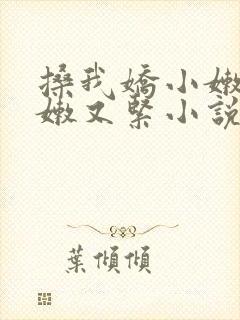 搡我嬌小嫩
嫩又緊小說
葉傾傾